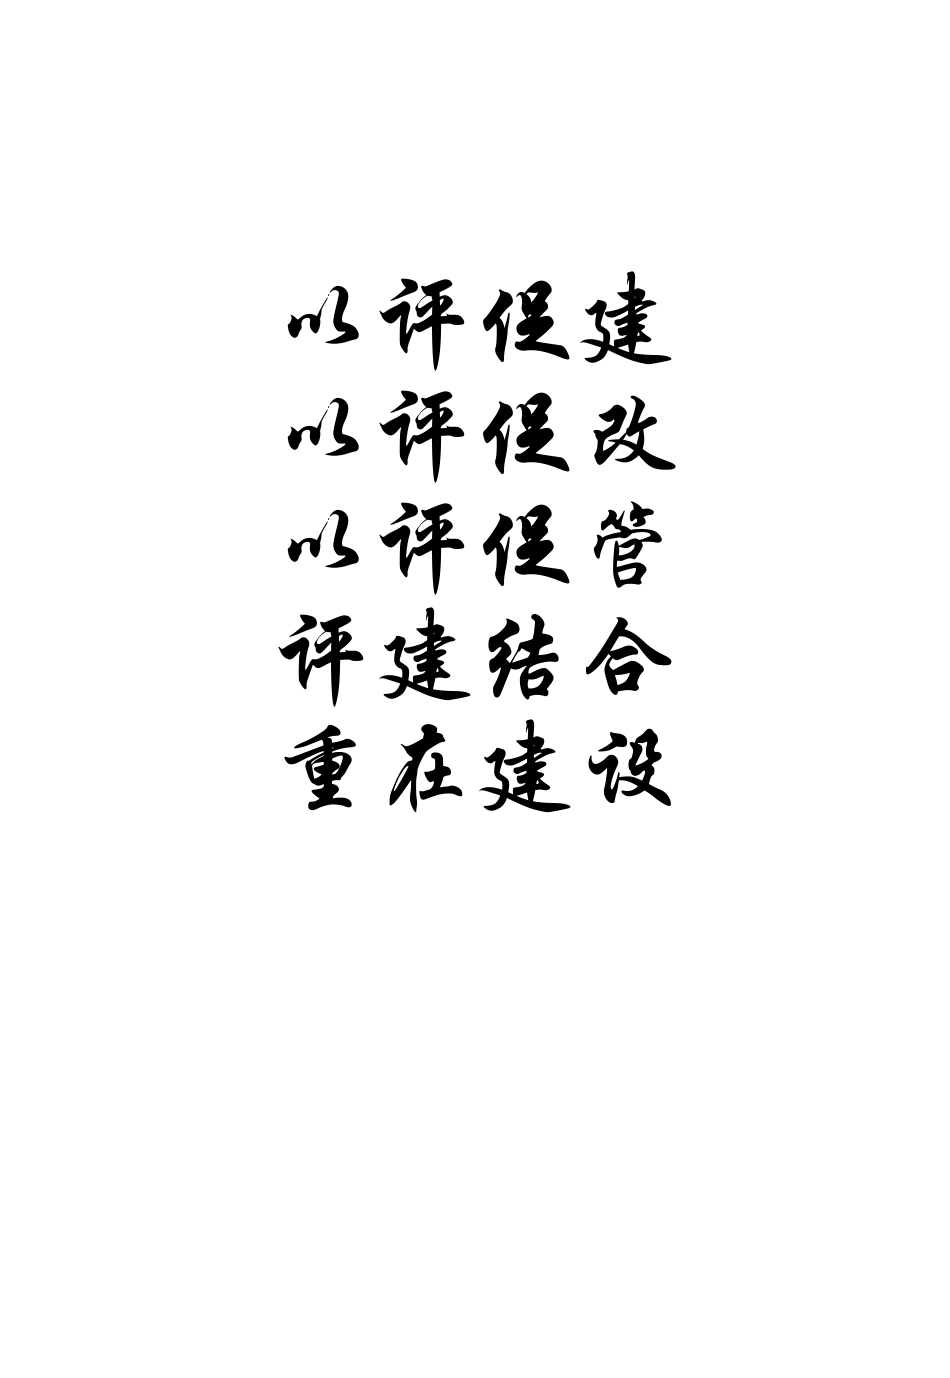 以评促建
以评促改
以评促管
评建结合
重在建设